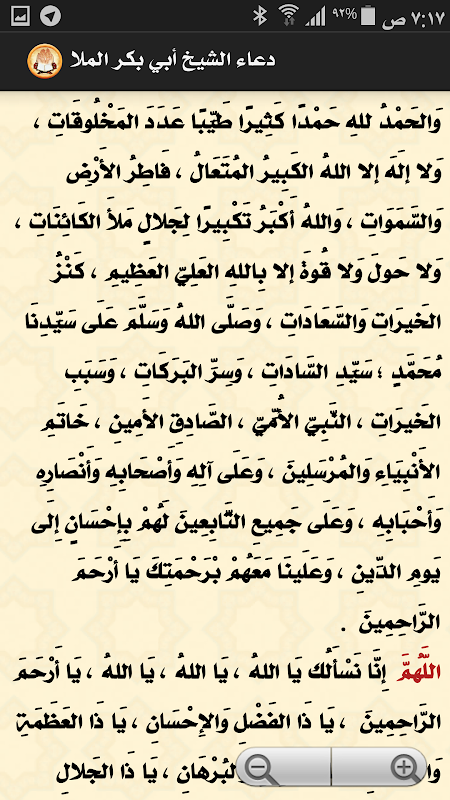 ٧:١٧ ص
٩٢%
دعاء الشيخ أبي بكر الملا
وَالحَمْدُ للهِ حَمْدًا كَثِيرًا طَيِّبًا عَدَدَ المَخْلُوقَاتِ ،
وَلا إلَهَ إلا اللهُ الكَبِيرُ المُتَعَالُ ، فَاطِرُ الأَرْضِ
وَالسَّمَوَاتِ ، وَاللهُ أَكْبَرُ تَكْبِيرًا لِجَلالٍ مَلأَ الكَائنَاتِ ،
وَلا حَولَ وَلا قُوةَ إلا بِاللهِ العَلِيِّ العظيمِ ، كَنْزُ
الخَيراتِ والسَّعَادَاتِ ، وَصَلَّى اللهُ وَسَلَّمَ عَلَى سَيِّدِنَا
مُحَمَّدٍ ؛ سَيِّدِ السَّادَاتِ ، وَسِرِّ البَرَكَاتِ ، وَسَبَبِ
الخَيرَاتِ ، النَّبِيِّ الأُمِّيِّ ، الصَّادِقِ الأَمينِ ، خَاتَمِ
الأنْبِيَاءِ وَالمُرْسَلينَ ، وَعَلَى آلِهِ وَأَصْحَابِهِ وَأَنْصَارِهِ
وَأَحْبَابِهِ ، وَعَلَى جَمِيعِ التَّابِعينَ لَهُمْ بِإِحْسَانٍ إِلَى
يَومِ الدِّينِ ، وَعَلَينَا مَعَهُمْ بْرَحْمَتِكَ يَا أَرْحَمَ
الرَّاحِمِينَ .
اللَّهُمَّ إِنَّا نَسْأَلُكَ يَا اللهُ ، يَا اللهُ ، يَا اللهُ ، يَا أَرْحَمَ
الرَّاحِمِينَ ، يَا ذَا الفَضْل وَالإحْسَان ، يَا ذَا العَظَمَةِ
لبُرْهَانِ ، يَا ذَا الجَلالِ